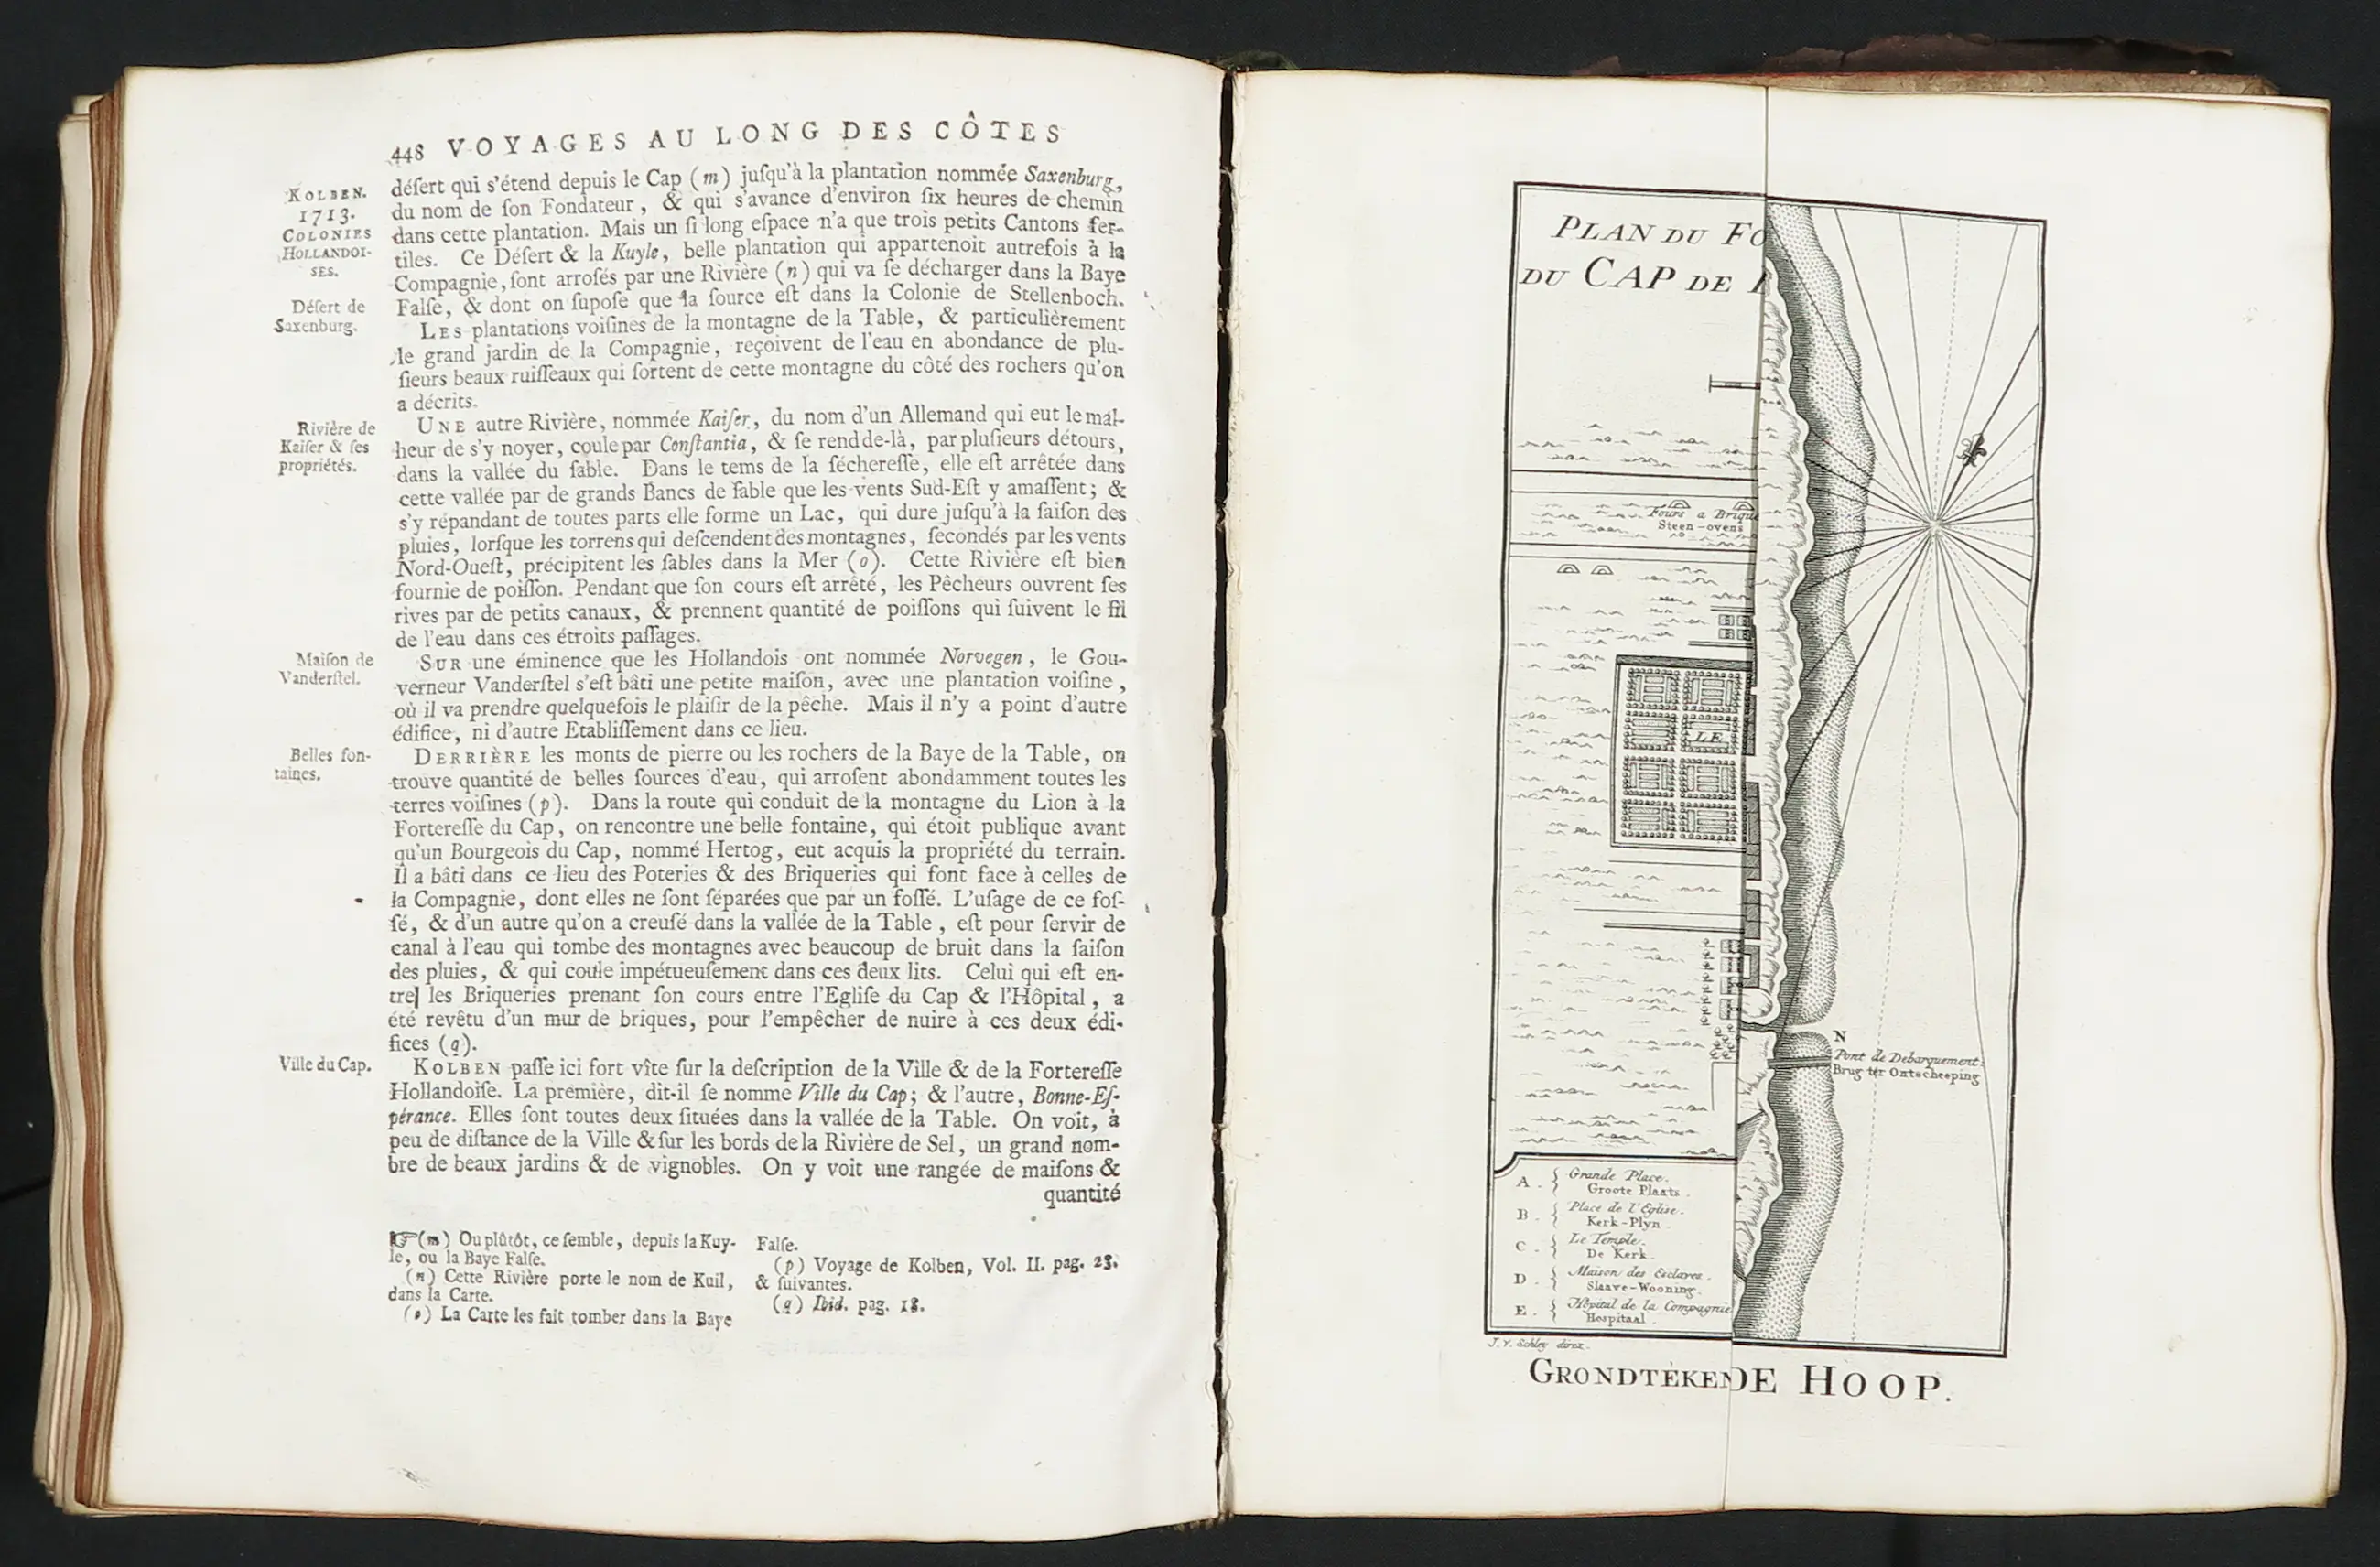 448 VOYAGES AU LONG DES CÔTES
KOLBEN.
1713.
COLONIES
HOLLANDOI-
SES.
Déſert de
Saxenburg.
Rivière de
Kaiſer & ſes
propriétés.
Maiſon de
Vanderſtel.
Belles fon-
taines.
Ville du Cap.
déſert qui s'étend depuis le Cap (m) juſqu'à la plantation nommée Saxenburg,
du nom de ſon Fondateur, & qui s'avance d'environ ſix heures de chemin
dans cette plantation. Mais un ſi long eſpace n'a que trois petits Cantons fer-
tiles. Ce Déſert & la Kuyle, belle plantation qui appartenoit autrefois à la
Compagnie, ſont arroſés par une Rivière (n) qui va ſe décharger dans la Baye
Falſe, & dont on ſupoſe que la ſource eſt dans la Colonie de Stellenboch.
LES plantations voiſines de la montagne de la Table, & particulièrement
le grand jardin de la Compagnie, reçoivent de l'eau en abondance de plu-
ſieurs beaux ruiſſeaux qui ſortent de cette montagne du côté des rochers qu'on
a décrits.
UNE autre Rivière, nommée Kaiſer, du nom d'un Allemand qui eut le mal-
heur de s'y noyer, coule par Conſtantia, & ſe rend de-là, par pluſieurs détours,
dans la vallée du ſable. Dans le tems de la ſéchereſſe, elle eſt arrêtée dans
cette vallée par de grands Bancs de ſable que les vents Sud-Eſt y amaſſent; &
s'y répandant de toutes parts elle forme un Lac, qui dure juſqu'à la ſaiſon des
pluies, lorſque les torrens qui deſcendent des montagnes, ſecondés par les vents
Nord-Oueſt, précipitent les ſables dans la Mer (o). Cette Rivière eſt bien
fournie de poiſſon. Pendant que ſon cours eſt arrêté, les Pêcheurs ouvrent ſes
rives par de petits canaux, & prennent quantité de poiſſons qui ſuivent le fil
de l'eau dans ces étroits paſſages.
SUR une éminence que les Hollandois ont nommée Norvegen, le Gou-
verneur Vanderſtel s'eſt bâti une petite maiſon, avec une plantation voiſine,
où il va prendre quelquefois le plaiſir de la pêche. Mais il n'y a point d'autre
édifice, ni d'autre Etabliſſement dans ce lieu.
DERRIÈRE les monts de pierre ou les rochers de la Baye de la Table, on
trouve quantité de belles ſources d'eau, qui arroſent abondamment toutes les
terres voiſines (p). Dans la route qui conduit de la montagne du Lion à la
Fortereſſe du Cap, on rencontre une belle fontaine, qui étoit publique avant
qu'un Bourgeois du Cap, nommé Hertog, eut acquis la propriété du terrain.
Il a bâti dans ce lieu des Poteries & des Briqueries qui font face à celles de
la Compagnie, dont elles ne ſont ſéparées que par un foſſé. L'uſage de ce foſ-
ſé, & d'un autre qu'on a creuſé dans la vallée de la Table, eſt pour ſervir de
canal à l'eau qui tombe des montagnes avec beaucoup de bruit dans la ſaiſon
des pluies, & qui coule impétueuſement dans ces deux lits. Celui qui eſt en-
tre les Briqueries prenant ſon cours entre l'Egliſe du Cap & l'Hôpital, a
été revêtu d'un mur de briques, pour l'empêcher de nuire à ces deux édi-
fices (q).
KOLBEN paſſe ici fort vîte ſur la deſcription de la Ville & de la Fortereſſe
Hollandoiſe. La première, dit-il ſe nomme Ville du Cap; & l'autre, Bonne-Eſ-
pérance. Elles ſont toutes deux ſituées dans la vallée de la Table. On voit, à
peu de diſtance de la Ville & ſur les bords de la Rivière de Sel, un grand nom-
bre de beaux jardins & de vignobles. On y voit une rangée de maiſons &
quantité
☞ (m) Ou plûtôt, ce ſemble, depuis la Kuy-
le, ou la Baye Falſe.
(n) Cette Rivière porte le nom de Kuil,
dans la Carte.
(o) La Carte les fait tomber dans la Baye
Falſe.
(p) Voyage de Kolben, Vol. II. pag. 23.
& ſuivantes.
(q) Ibid. pag. 18.
PLAN DU FO
DU CAP DE
Fours a Brique
Steen-ovens
LE
N
Pont de Debarquement.
Brug ter Ontscheeping
A. Grande Place.
Groote Plaats.
B. Place de l'Eglise.
Kerk-Plyn.
C. Le Temple.
De Kerk.
D. Maison des Esclaves.
Slaave-Wooning.
E. Hôpital de la Compagnie
Hospitaal.
J. V. Schley direx.
GRONDTÉKEN
DE HOOP.